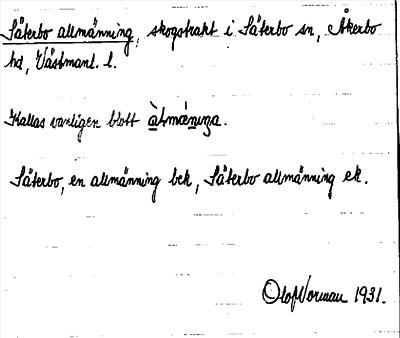 Säterbo allmänning, skogstrakt i Säterbo sn, Åkerbo
hd, Västmanl. l.
Kallas vanligen blott àlmǽniŋa.
Säterbo, en allmänning bek, Säterbo allmänning ek.
Olof Norman 1931.